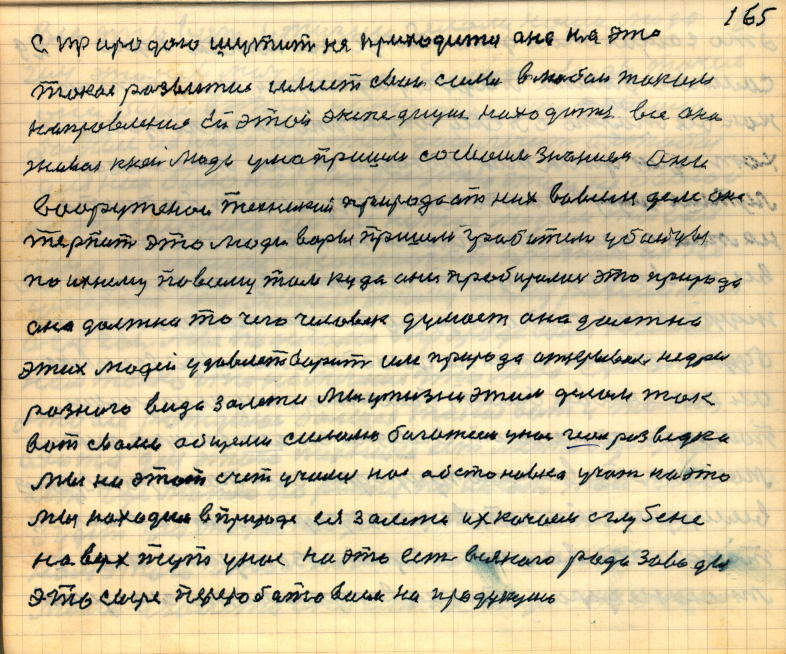 165
С природою шутит не приходится она на это
такое развитие имеет свои силы в любом таком
направление В этой экспедиции находится все она
живая к ней люди ума пришли со своим знанием Они
вооружоной техникой природа от них в своем деле она
терпит это люди воры пришли грабители убойцы
по ихнему по всему там куда они пробирались это природа
она должна то чего человек думает она должна
этих людей удовлетворит им природа открывает недры
разного вида залежи Мы у жизни этим делом так
вот своими общеми силами богатеем у нас геолразведка
Мы на этот счет учили нас обстановка учит на это
мы находим в природе ея залежи их качаем с глубене
на верх тут у нас на это ест всякого рода заводы
это сыре перерабатоваем на продукцию